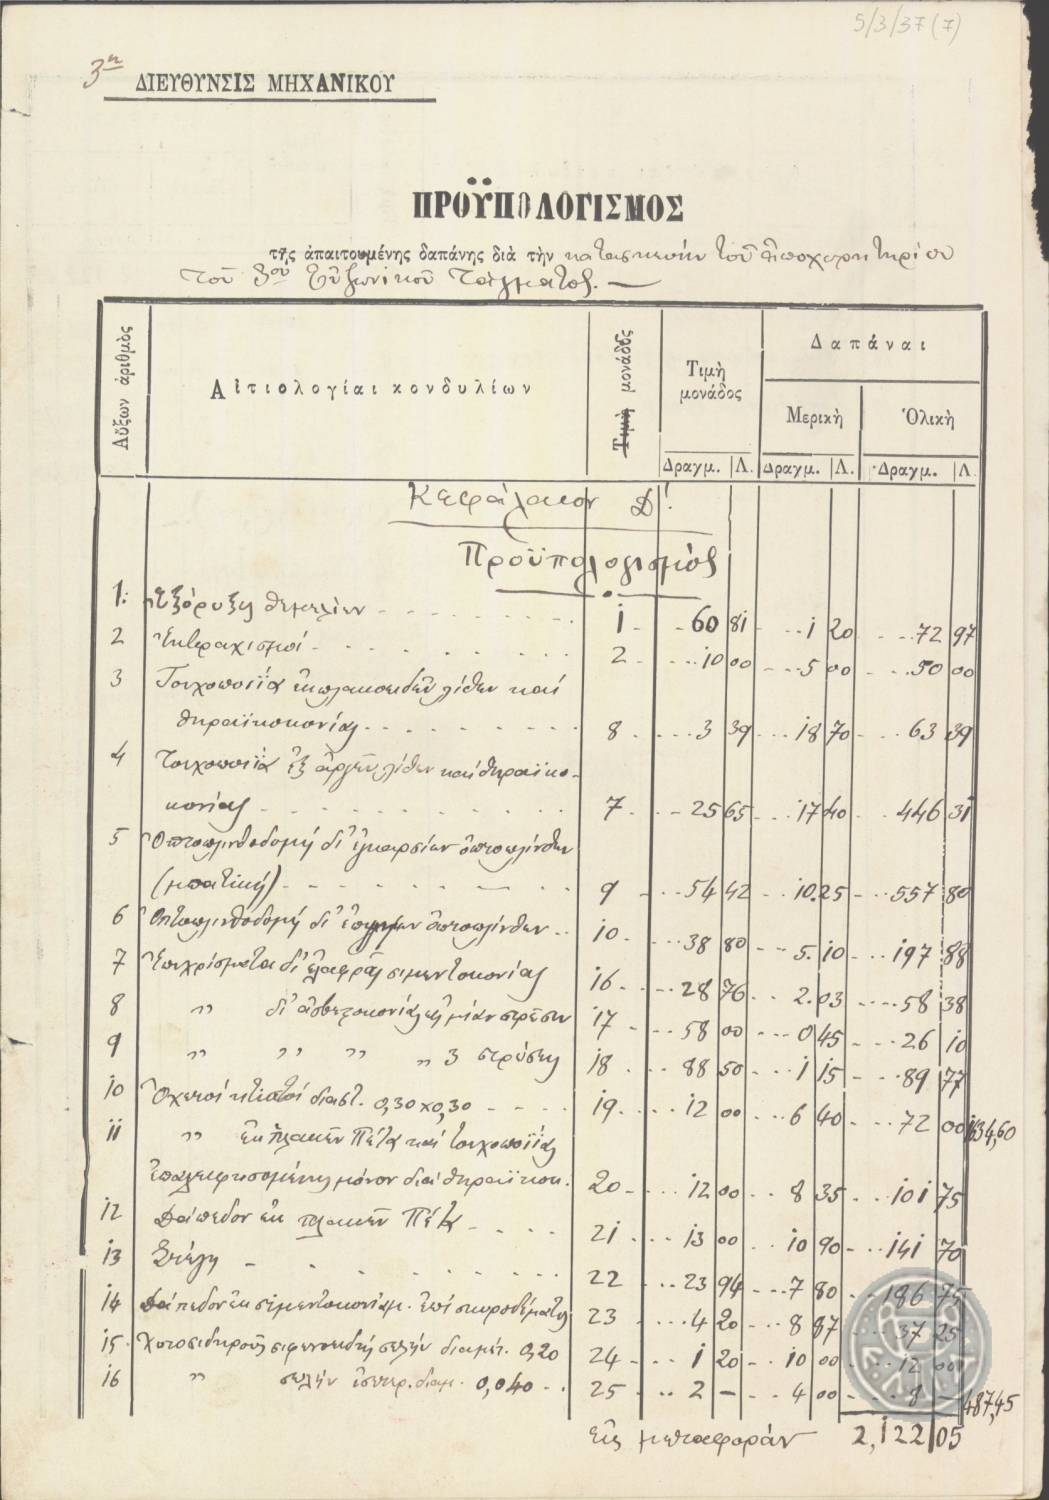 5/3/37(7)
3η ΔΙΕΥΘΥΝΣΙΣ ΜΗΧΑΝΙΚΟΥ
ΠΡΟΫΠΟΛΟΓΙΣΜΟΣ
τῆς ἀπαιτουμένης δαπάνης διὰ τὴν κατασκευήν τοῦ ἀποχωρητηρίου
τοῦ 3ου Εὐζωνικοῦ Τάγματος. —
Αὔξων ἀριθμὸς
Αἰτιολογίαι κονδυλίων
Τιμὴ μονάδος
Τιμὴ μονάδος
Δαπάναι
Μερικὴ
Ὁλικὴ
Δραγμ. Λ. Δραγμ. Λ. Δραγμ. Λ.
Κεφάλαιον Δ!
Προϋπολογισμός
1. Ἐξόρυξις θεμελίων 1 60 81 1 20 72 97
2 Ἐκβραχισμοί 2 10 00 5 00 50 00
3 Τοιχοποιΐα ἐκ πλακοειδῶν λίθων καί
θηραϊκοκονίας 8 3 39 18 70 63 39
4 Τοιχοποιΐα ἐξ ἀργῶν λίθων καί θηραϊκο-
κονίας 7 25 65 17 40 446 31
5 Ὀπτοπλινθοδομή δι' ἐγκαρσίων ὀπτοπλίνθων
(μπατική) 9 54 42 10.25 557 80
6 Ὀπτοπλινθοδομή δι' ὀπτοπλίνθων 10 38 80 5.10 197 88
7 Ἐπιχρίσματα δι' ἐλαφρᾶς σιμεντοκονίας 16 28 76 2.03 58 38
8 " δι' ἀσβεστοκονίας εἰς μίαν στρῶσιν 17 58 00 0 45 26 10
9 " " " " 3 στρώσεις 18 88 50 1 15 89 77
10 Ὀχετοί κτιστοί διαστ. 0,30 x 0,30 19 12 00 6 40 72 00 1634,60
11 " ἐκ πλακῶν Πέτα καί τοιχοποιΐας
ἐπαλειφησομένης μόνον διά θηραϊκοκ. 20 12 00 8 35 101 75
12 Δάπεδον ἐκ πλακῶν Πέτα 21 13 00 10 90 141 70
13 Στέγη 22 23 94 7 80 186 75
14 Δάπεδον ἐκ σιμεντοκονίας ἐπί σκυροδέματος 23 4 20 8 87 37 25
15 Χυτοσιδηροῦς σιφωνοειδής σωλήν διαμέτ. 0,20 24 1 20 10 00 12 00
16 " σωλήν ἐσωτερ. διαμ. 0,040 25 2 — 4 00 8 — 487,45
εἰς μεταφοράν 2,122 05